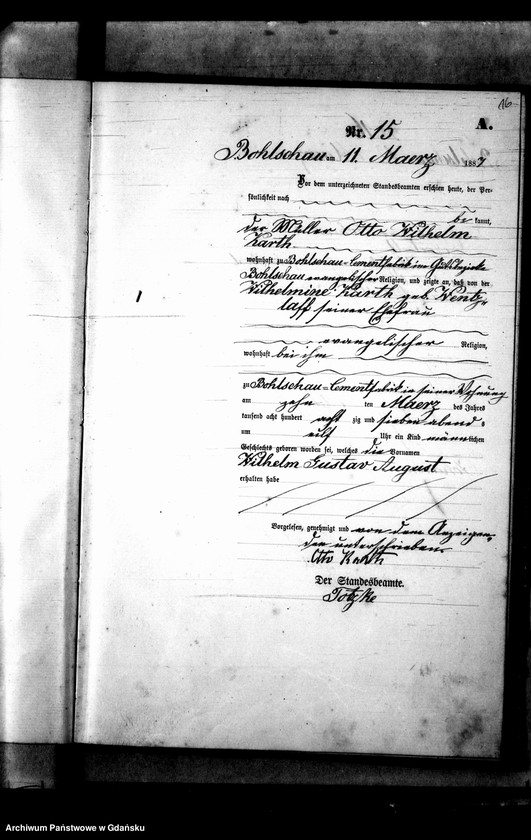 16
A.
Nr. 15
Bohlschau am 11. Maerz 1887
Vor dem unterzeichneten Standesbeamten erschien heute, der Per-
sönlichkeit nach
be kannt,
der Müller Otto Wilhelm
Karth
wohnhaft zu Bohlschau-Cementfabrik im Gutsbezirke
Bohlschau evangelischer Religion, und zeigte an, daß von der
Wilhelmine Karth geb. Wentz-
laff seiner Ehefrau
evangelischer Religion,
wohnhaft bei ihm
zu Bohlschau-Cementfabrik in seiner Wohnung
am zehn ten Maerz des Jahres
tausend acht hundert acht zig und sieben abends
um elf Uhr ein Kind männlichen
Geschlechts geboren worden sei, welches die Vornamen
Wilhelm Gustav August
erhalten habe
Vorgelesen, genehmigt und von dem Anzeigen-
den unterschrieben
Otto Karth
Der Standesbeamte.
Totzke
Archiwum Państwowe w Gdańsku